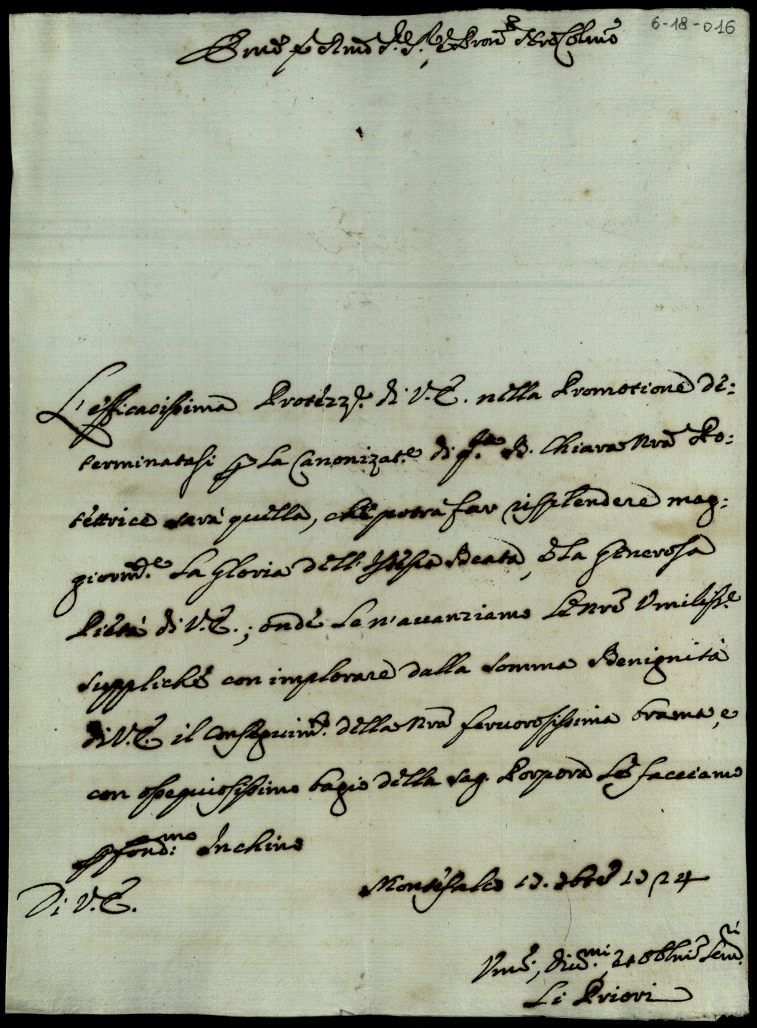 6-18-016
Em̃o e Rm̃o Sig.re Sig.re e Pron̄ Nrõ Colm̃o
L'efficacissima Protezz.e di V. E. nella Promotione de:
terminatasi p la Canonizat.e di q.sta B. Chiara Nrã Pro:
tettrice sarà quella, che potrà far risplendere mag:
giorm.te la Gloria dell'istessa Beata, e la Generosa
Pietà di V. E.; onde Le n'avanziamo Le Nrẽ Umiliss.e
suppliche con implorare dalla somma Benignità
di V. E. il Conseguim.to della Nrã fervorosissima brama, e
con ossequiosissimo bagio della Sag. Porpora Le facciamo
p̃fond.mo Inchino
Di V. E.
Montefalco 17. 1724
Um̃i, Div.mi, et Obblm̃i Serv.ri
Li Priori